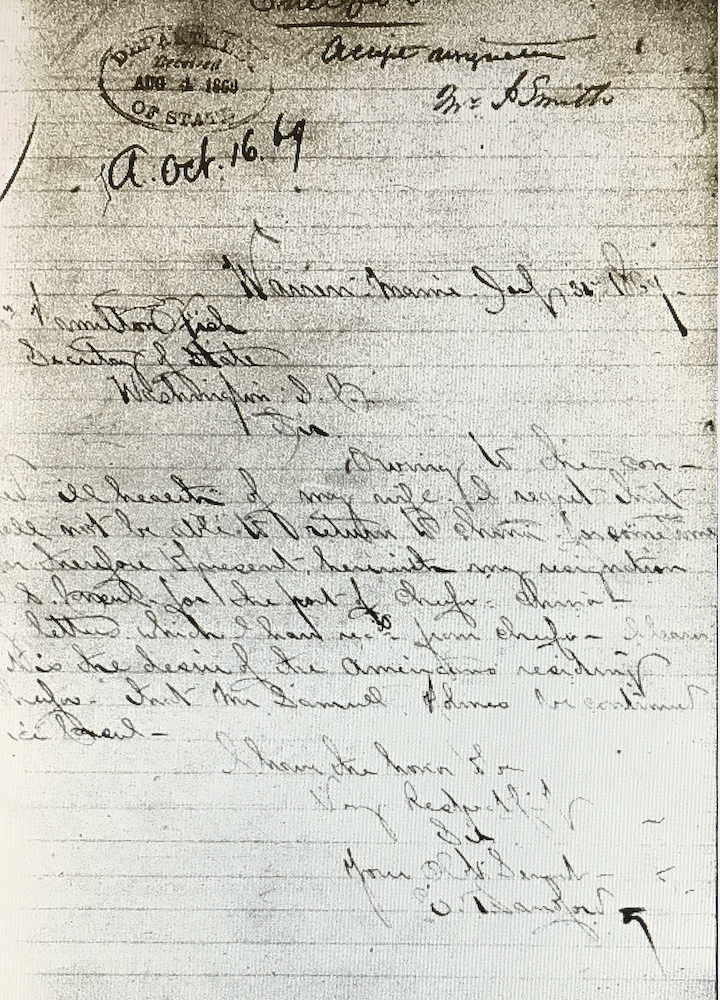 Chefoo
DEPARTMENT
Received
AUG 4 1869
OF STATE
Accept resignation
Mr. J Smith
A. Oct. 16. 69
Warren Maine. July 31st 1869.
Hamilton Fish
Secretary of State
Washington. D. C.
Sir.
Owing to the con-
ill health of my wife. I regret that
not be able to return to China for some time
therefore I present herewith my resignation
S. Consul for the port of Chefoo - China -
letters which I have recd from Chefoo - I learn
it is the desire of the Americans residing
that Mr Samuel Holmes be continued
Consul -
I have the honor to be
Very Respectfully
Sir
Your Obt. Servt -
E. T. Sandford